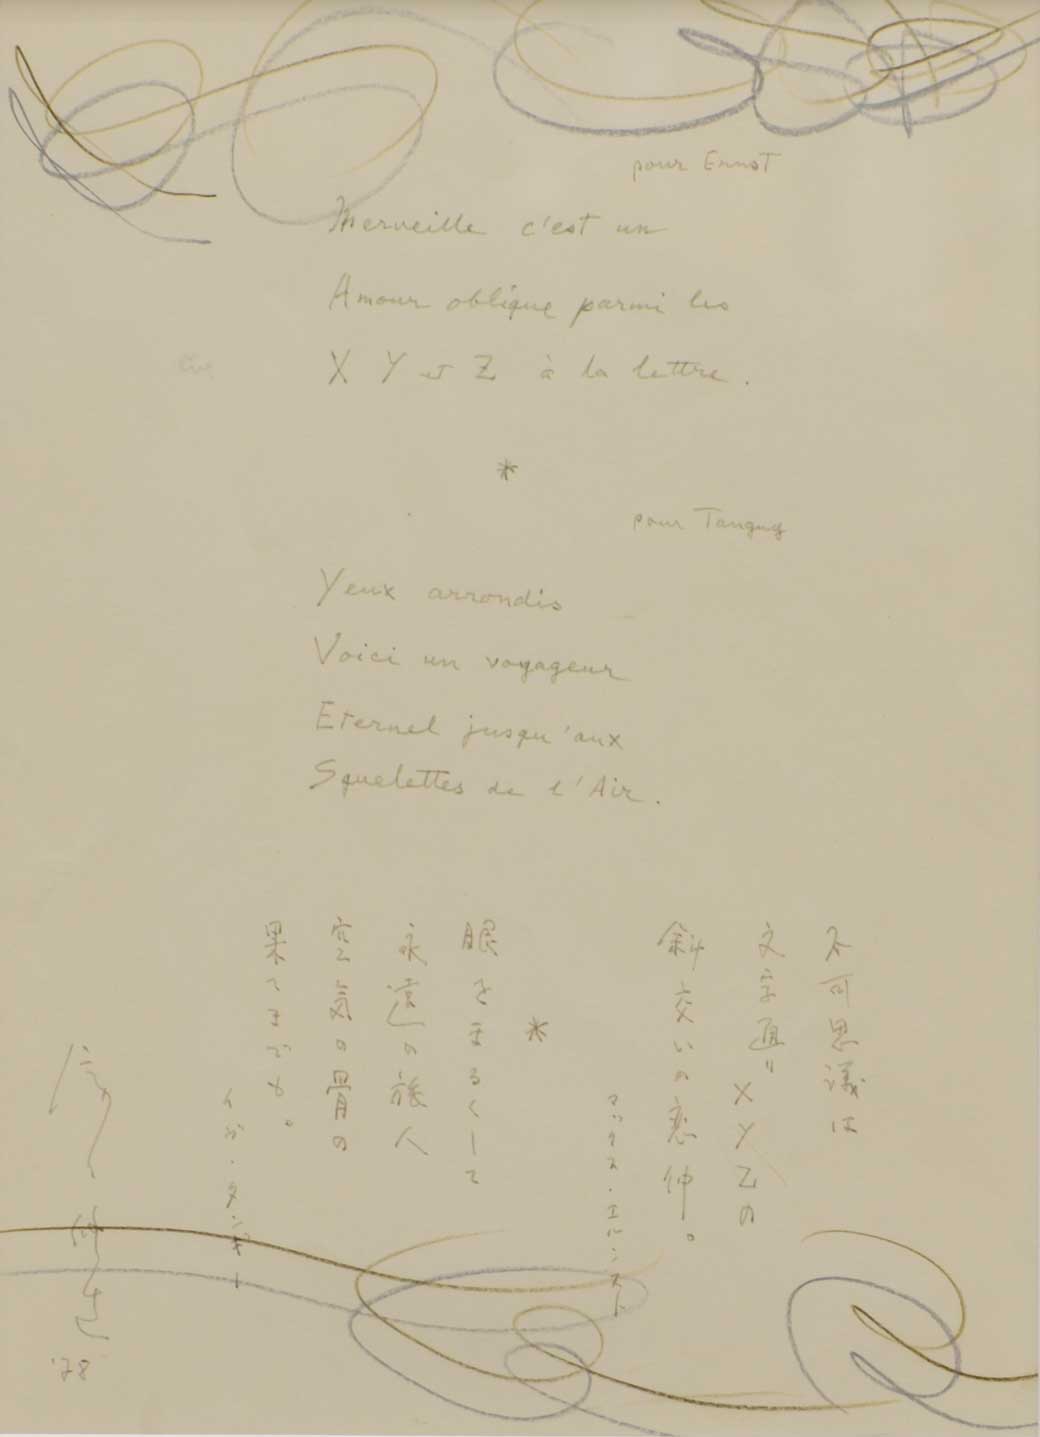 pour Ernst
Merveille c'est un
Amour oblique parmi les
X Y et Z à la lettre.
*
pour Tanguy
Yeux arrondis
Voici un voyageur
Eternel jusqu'aux
Squelettes de l'Air.
不可思議は
文字通りXYZの
斜交いの恋仲。
マックス・エルンスト
*
眼をまるくして
永遠の旅人
空気の骨の
果てまでも。
イヴ・タンギー
'78